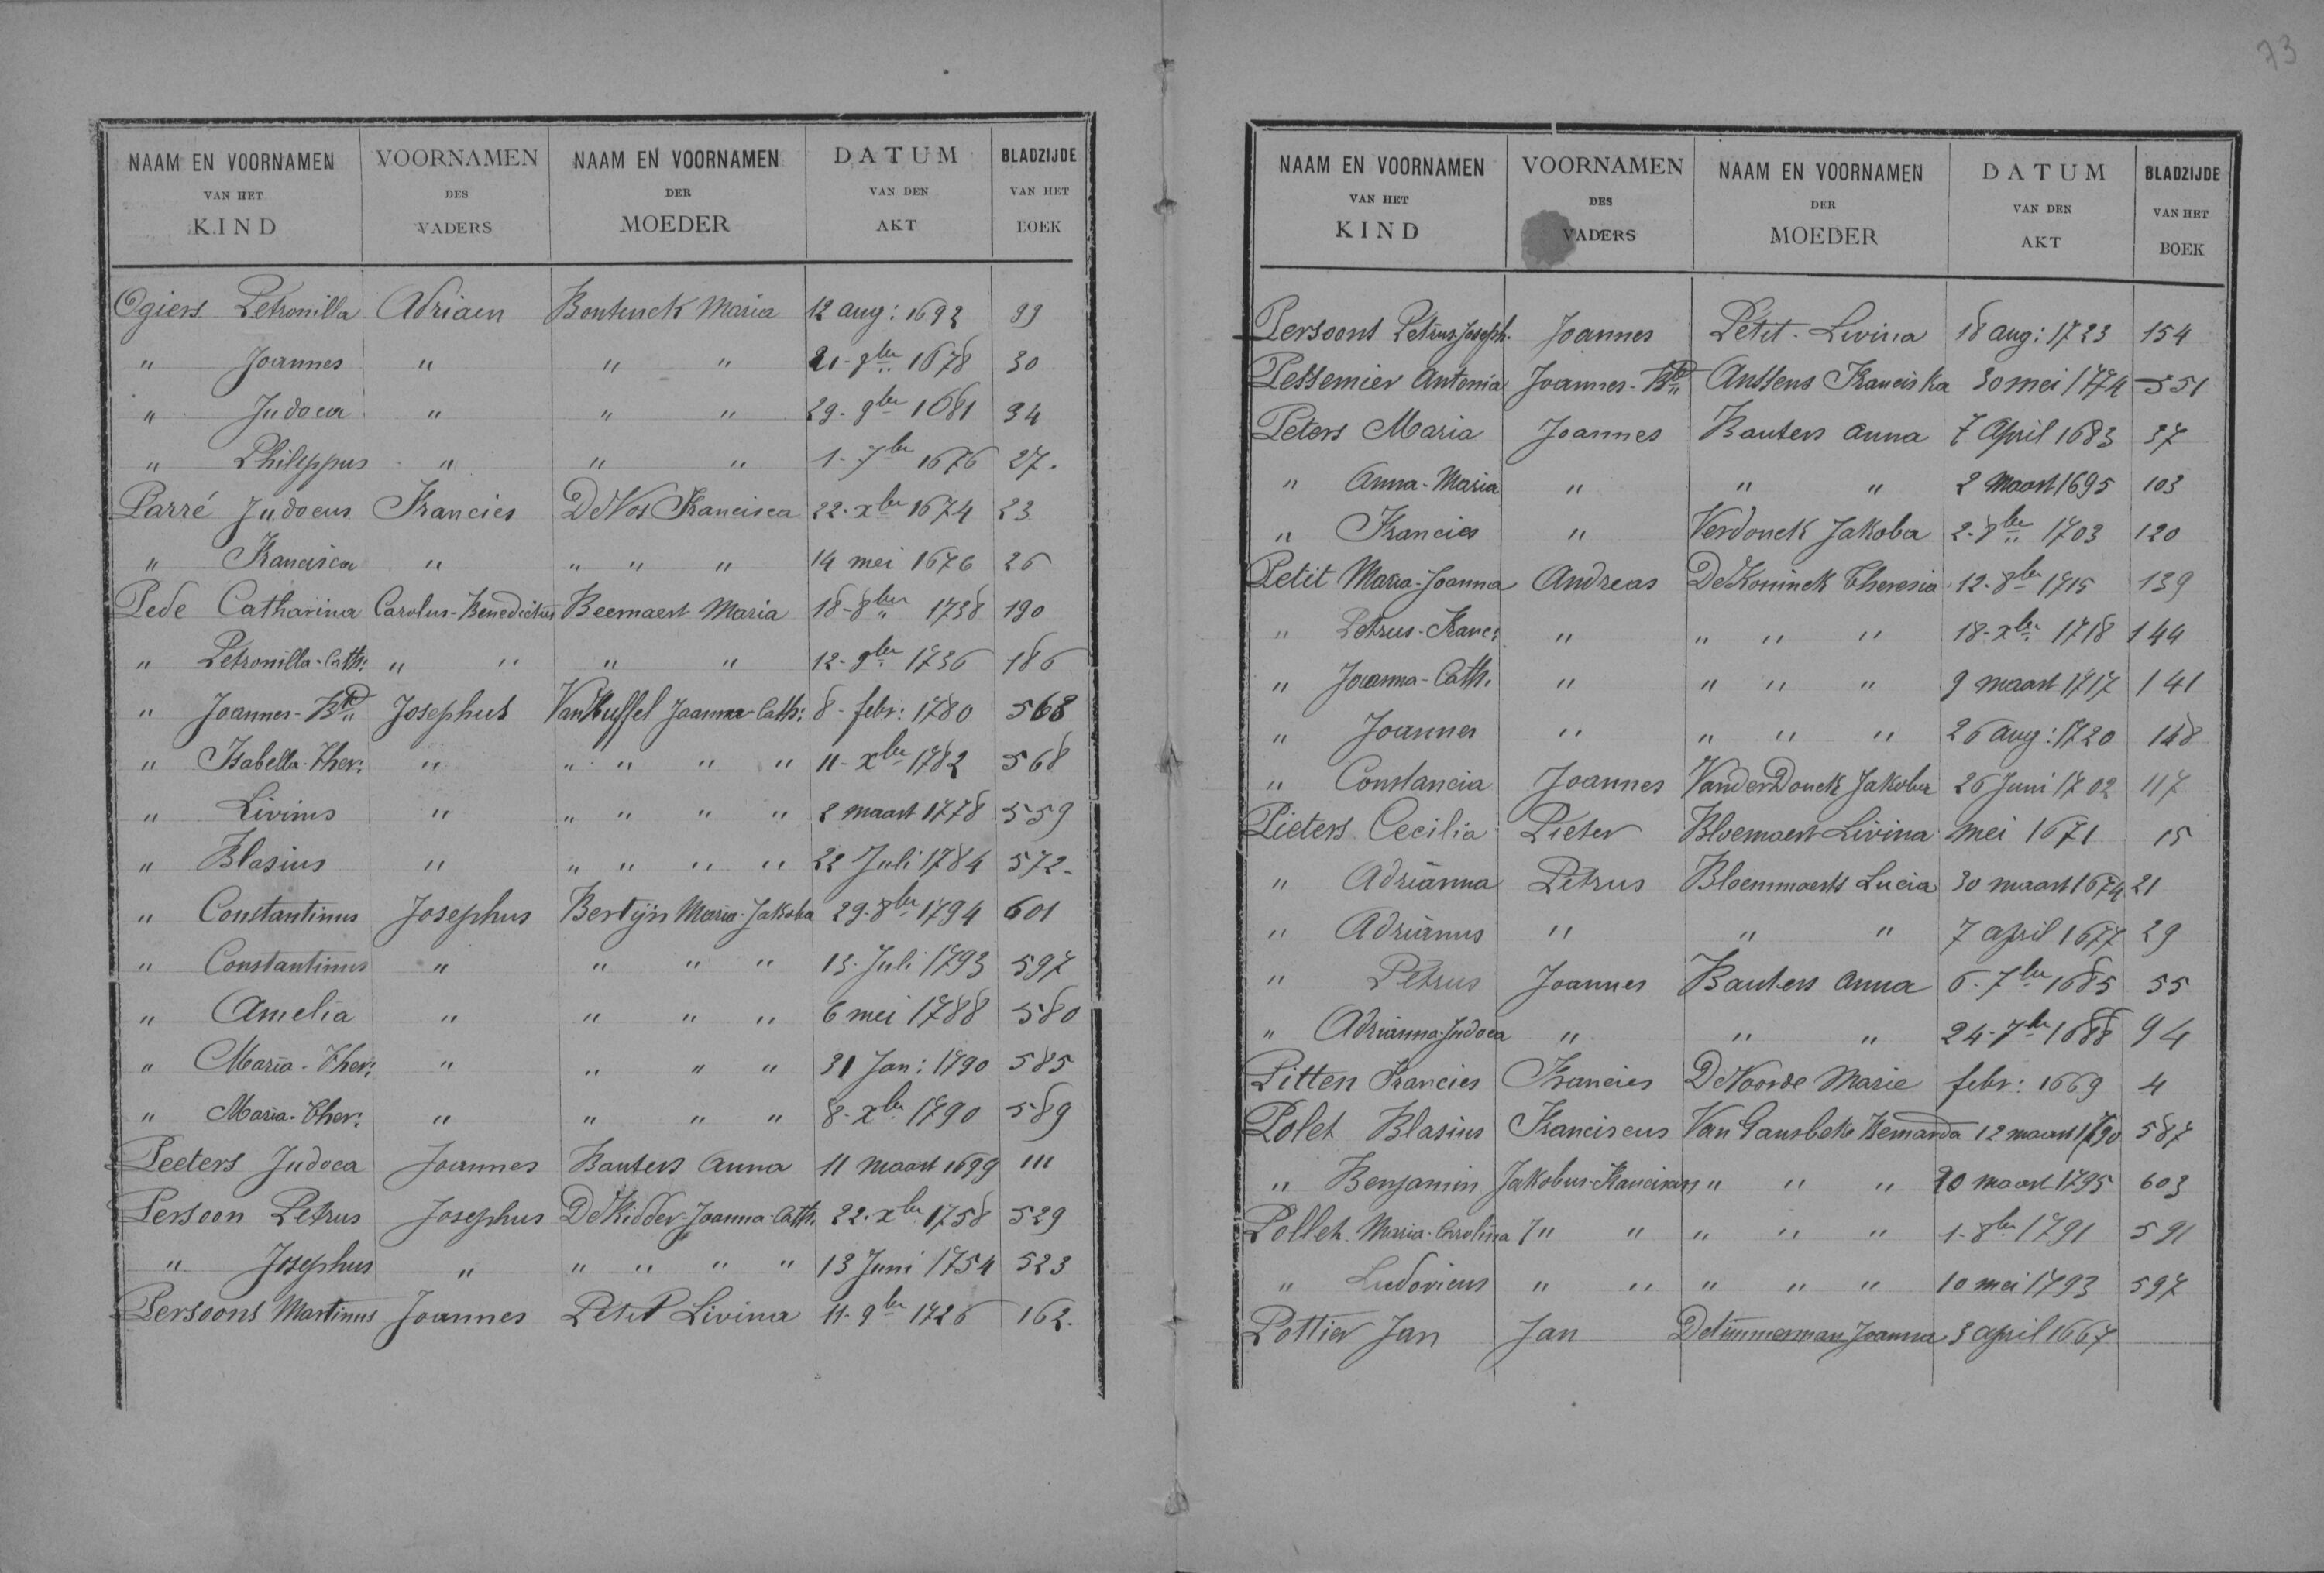 73
NAAM EN VOORNAMEN VAN HET KIND | VOORNAMEN DES VADERS | NAAM EN VOORNAMEN DER MOEDER | DATUM VAN DEN AKT | BLADZIJDE VAN HET BOEK
Ogiers Petronilla | Adriaen | Bontenck Maria | 12 aug: 1692 | 99
" Joannes | " | " " | 21-9ber 1678 | 30
" Judoca | " | " " | 29-9ber 1681 | 34
" Philippus | " | " " | 1-7ber 1676 | 27.
Parré Judocus | Francies | DeVos Francisca | 22-xber 1674 | 23
" Francisca | " | " " " | 14 mei 1676 | 26
Pede Catharina | Carolus-Benedictus | Beemaert Maria | 18-8ber 1738 | 190
" Petronilla-Cath: | " " | " " | 12-9ber 1736 | 186
" Joannes-Bta | Josephus | VanHuffel Joanna-Cath: | 8-febr: 1780 | 563
" Isabella-Ther: | " | " " " " | 11-xber 1782 | 568
" Livinus | " | " " " " | 2 maart 1778 | 559
" Blasius | " | " " " " | 22 Juli 1784 | 572-
" Constantinus | Josephus | Bertijn Maria-Jakoba | 29-8ber 1794 | 601
" Constantinus | " | " " " | 13-Juli 1793 | 597
" Amelia | " | " " " | 6 mei 1788 | 580
" Maria-Ther: | " | " " " | 31 Jan: 1790 | 585
" Maria-Ther: | " | " " " | 8-xber 1790 | 589
Peeters Judoca | Joannes | Bauters Anna | 11 maart 1699 | 111
Persoon Petrus | Josephus | DeRidder Joanna-Cath. | 22-xber 1758 | 529
" Josephus | " | " " " " | 13 Juni 1754 | 523
Persoons Martinus | Joannes | Petit Livina | 11-9ber 1726 | 162.
NAAM EN VOORNAMEN VAN HET KIND | VOORNAMEN DES VADERS | NAAM EN VOORNAMEN DER MOEDER | DATUM VAN DEN AKT | BLADZIJDE VAN HET BOEK
Persoons Petrus-Joseph. | Joannes | Petit-Livina | 18 aug: 1723 | 154
Pessemier Antonia | Joannes-Bta | Anssens Franciska | 30 mei 1774 | 551
Peters Maria | Joannes | Bauters Anna | 7 April 1683 | 37
" Anna-Maria | " | " " | 2 Maart 1695 | 103
" Francies | " | Verdonck Jakoba | 2-8ber 1703 | 120
Petit Maria-Joanna | Andreas | DeKoninck Theresia | 12-8ber 1715 | 139
" Petrus-Franc: | " | " " " | 18-xber 1718 | 144
" Joanna-Cath. | " | " " " | 9 maart 1717 | 141
" Joannes | " | " " " | 26 aug: 1720 | 148
" Constancia | Joannes | VanderDonck Jakoba | 26 Juni 1702 | 117
Pieters Cecilia | Pieter | Bloemaert Livina | mei 1671 | 15
" Adrianna | Petrus | Bloemmaerts Lucia | 30 maart 1674 | 21
" Adrianus | " | " " | 7 april 1677 | 29
" Petrus | Joannes | Bauters Anna | 6-7ber 1685 | 55
" Adrianna-Judoca | " | " " | 24-7ber 1688 | 94
Pitten Francies | Francies | DeVoorde Marie | febr: 1669 | 4
Polet Blasius | Franciscus | Van Gansbeke Bernarda | 12 maart 1790 | 587
" Benjamin | Jakobus-Franciscus | " " " | 20 maart 1795 | 603
Pollet Maria-Carolina | J" " | " " " | 1-8ber 1791 | 591
" Ludovicus | " " | " " " | 10 mei 1793 | 597
Pottier Jan | Jan | Detimmerman Joanna | 3 april 1667